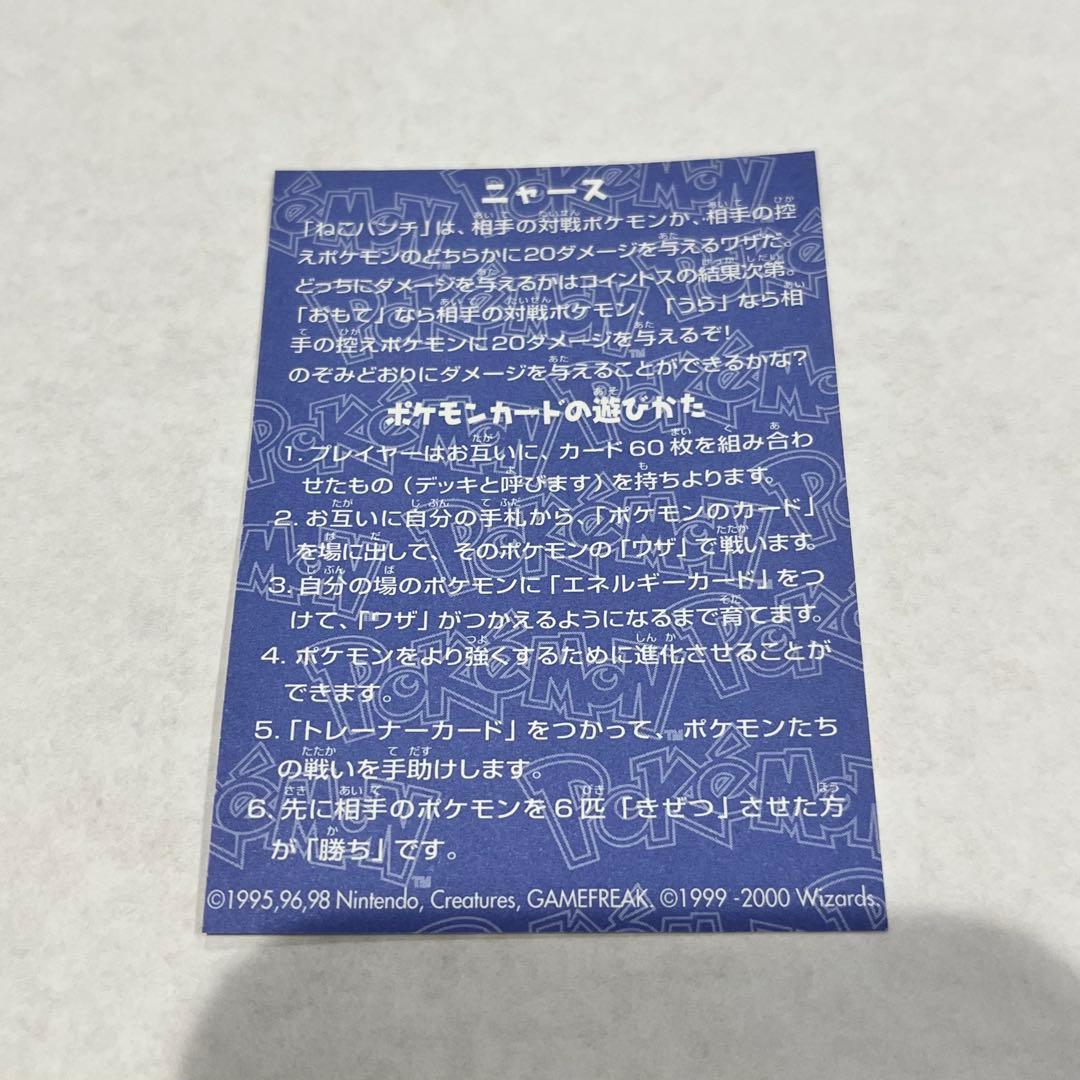 ニャース
「ねこパンチ」は、相手の対戦ポケモンか、相手の控
えポケモンのどちらかに20ダメージを与えるワザだ。
どっちにダメージを与えるかはコイントスの結果次第。
「おもて」なら相手の対戦ポケモン、「うら」なら相
手の控えポケモンに20ダメージを与えるぞ!
のぞみどおりにダメージを与えることができるかな?
ポケモンカードの遊びかた
1. プレイヤーはお互いに、カード60枚を組み合わ
せたもの(デッキと呼びます)を持ちよります。
2. お互いに自分の手札から、「ポケモンのカード」
を場に出して、そのポケモンの「ワザ」で戦います。
3. 自分の場のポケモンに「エネルギーカード」をつ
けて、「ワザ」がつかえるようになるまで育てます。
4. ポケモンをより強くするために進化させることが
できます。
5. 「トレーナーカード」をつかって、ポケモンたち
の戦いを手助けします。
6. 先に相手のポケモンを6匹「きぜつ」させた方
が「勝ち」です。
©1995,96,98 Nintendo, Creatures, GAMEFREAK. ©1999-2000 Wizards.